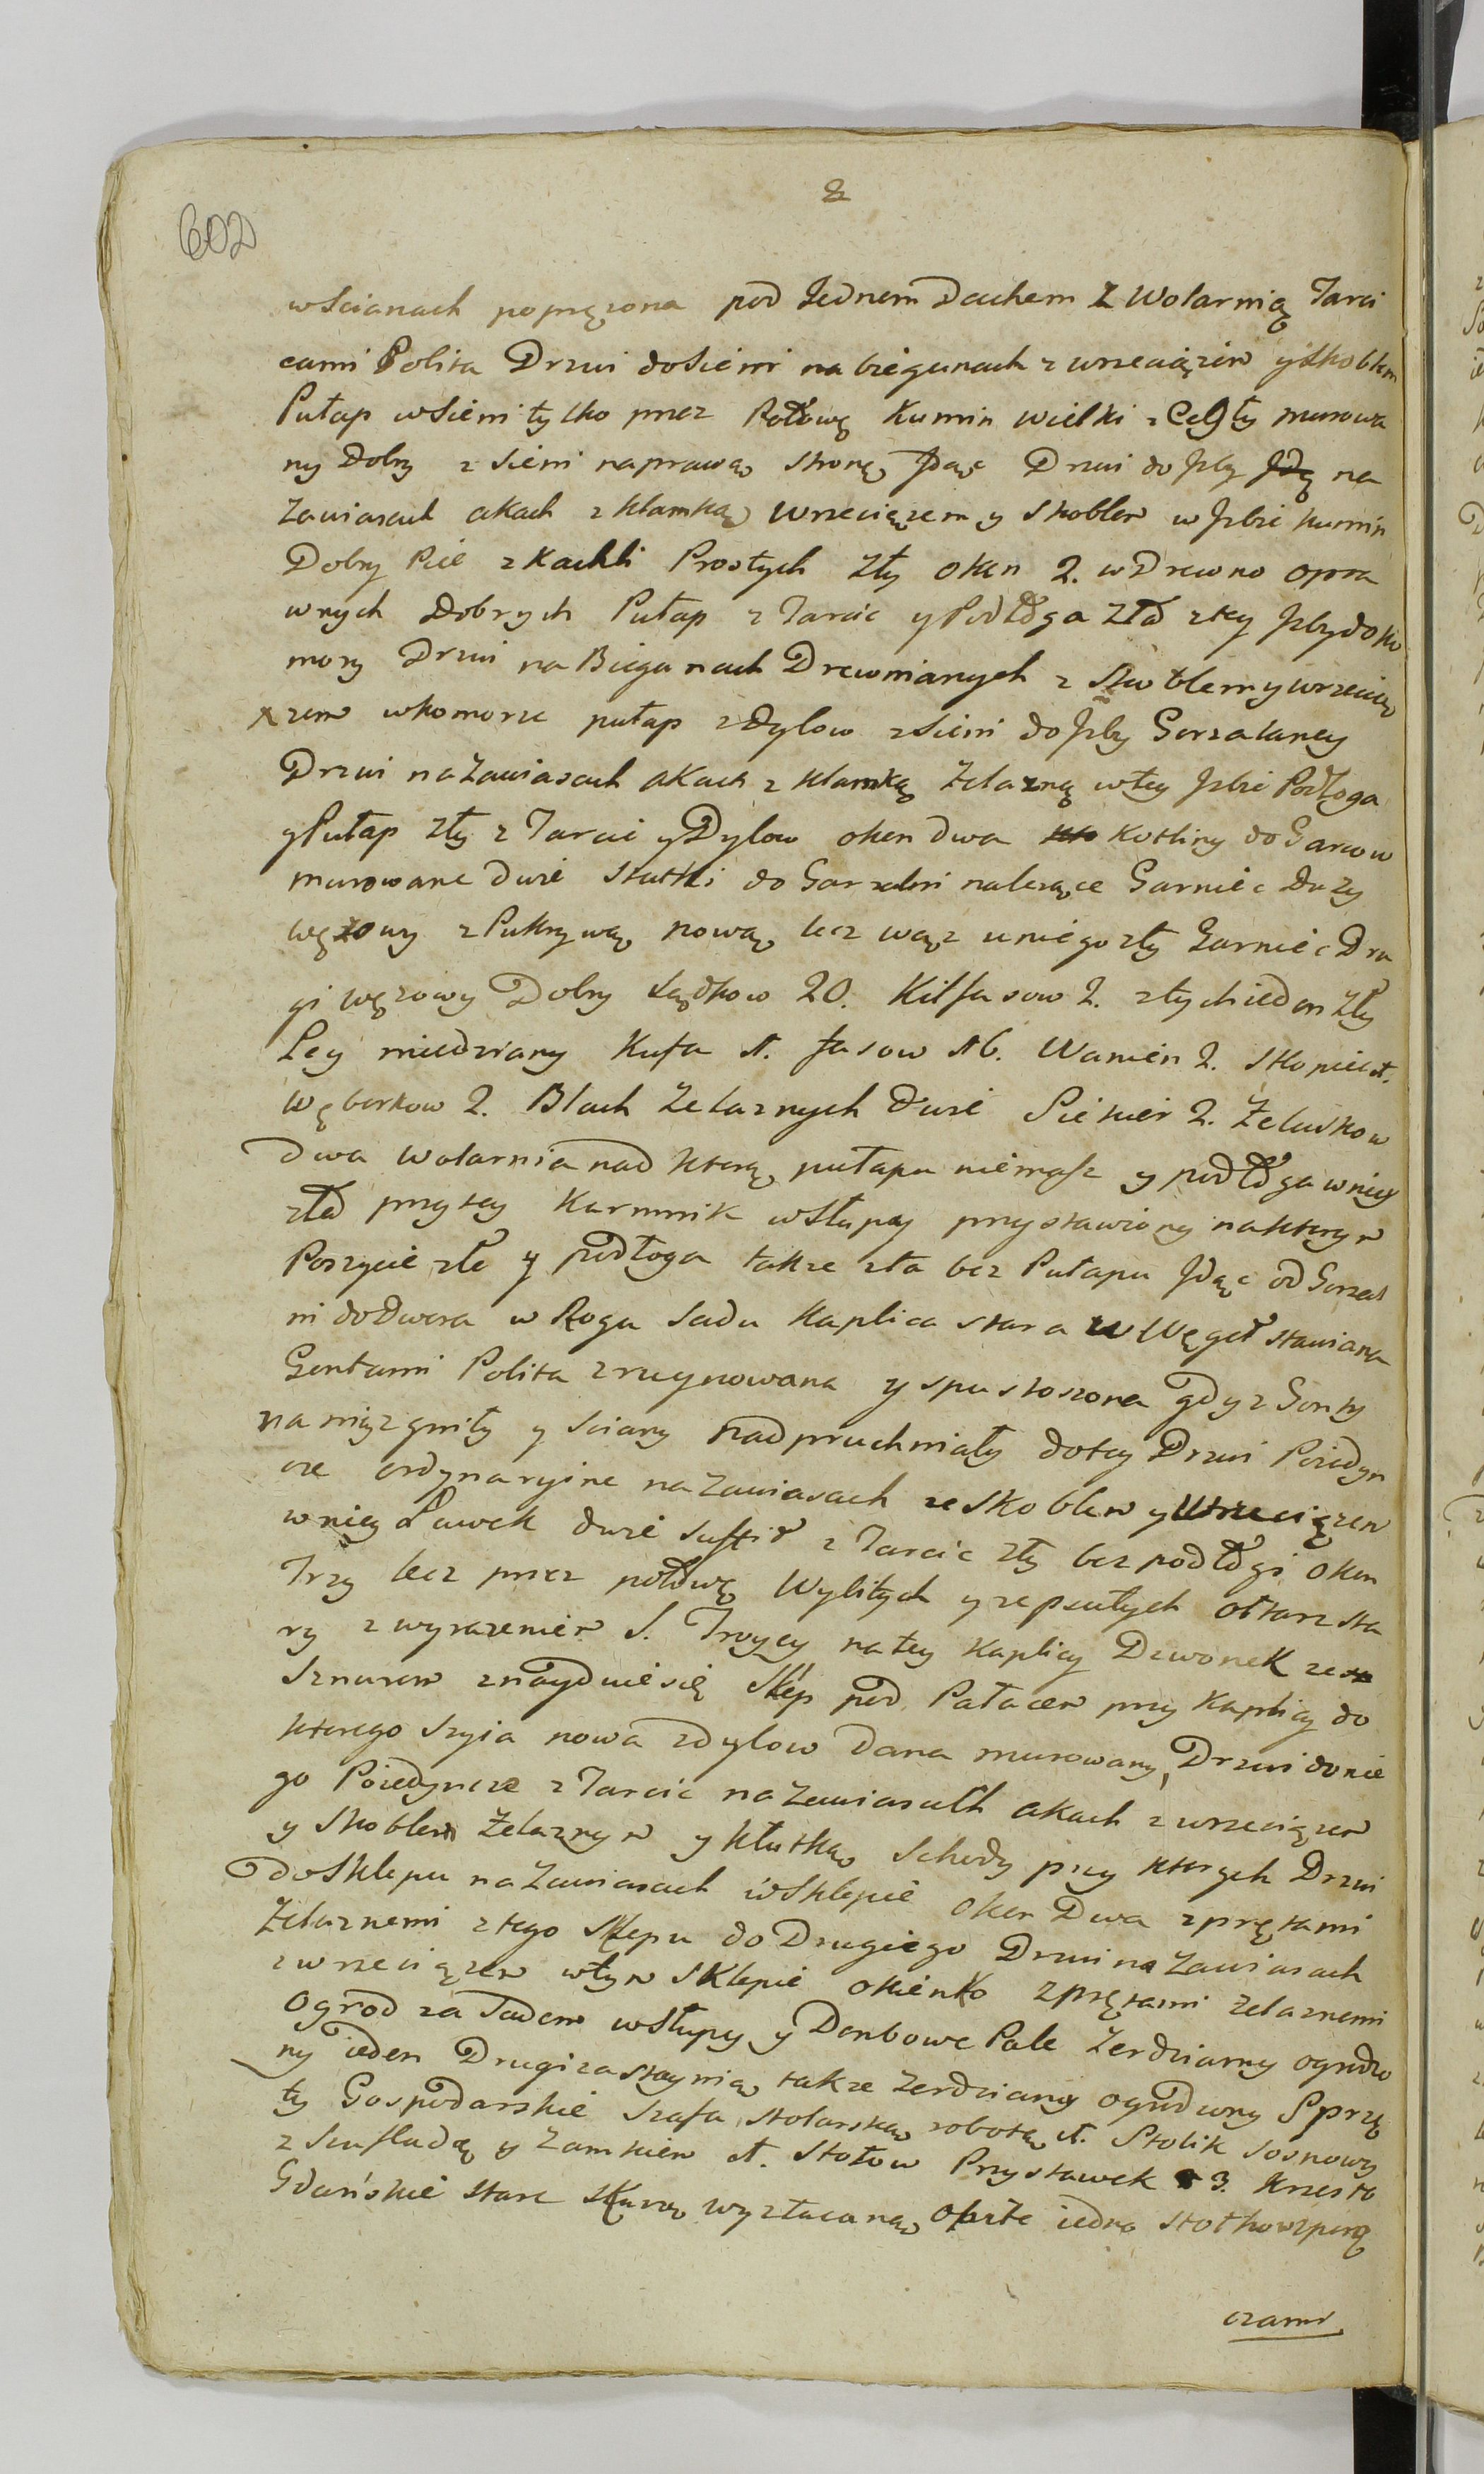 602
2
wScianach poprężona pod Jednem Dachem Z Wolarnią Tarci
cami Polita Drzwi doSieni na biegunach z wrzeciązem yskoblem
Pułap wSieni tylko przez Połowę Kumin Wielki z Cegły murowa
ny Dobry z Sieni naprawą stronę Jdąc Drzwi do Jzby na
Zawiasach akach z klamką wrzeciązem y Skoblem w Jzbie kumin
Dobry Piec z Kachli Prostych Zły oken 2. w Drewno opra
wnych Dobrych Pułap z Tarcic y Podłoga Zła z tey Jzby do ko
mory Drzwi na Bieganach Drewnianych z Skoblem y wrzecią
zem wkomorze pułap z Dylow z Sieni do Jzby Gorzalaney
Drzwi na Zawiasach akach z klamką Żelazną wtey Jzbie Podłoga
y Pułap zły z Tarcic y Dylow oken dwa kotliny do Garcow
murowane Dwie Statki do Garzelni należące Garniec Duży
wężowy z Pukrywą nową lecz wąż u niego zły Garniec Dru
gi wężowy Dobry Lądkow 20. Kilfasow 2. złych ieden Zły
Ley miedziany Kufa 1. fasow 16. Wanien 2. Skopiec 1.
Węborkow 2. Blach Żelaznych Dwie Siekier 2. Żelaskow
Dwa Wolarnia nad którą pułapu niemasz y podłoga wniey
zła przytey Karmnik wSłupy przystawiony naktorym
Poszycie złe y podłoga także zła bez Pułapu Jdąc od Gorzal
ni do dwora w Rogu Sadu Kaplica stara w Węgeł stawiana
Gontami Polita zruynowana y spustoszona gdyz Gonty
na niey zgniły y Sciany nadpruchniały dotey Drzwi Poiedyn
cze ordynaryine na Zawiasach ze Skoblem y Wrzeciązem
wniey Ławek dwie Suffit z Tarcic zły bez podłogi oken
Trzy lecz przez połowę Wybitych y zepsutych ołtarz sta
ry z wyrazeniem S. Troycy na tey Kaplicy Dzwonek ze
Sznurem znayduiesię Sklep pod Pałacem przy Kaplicy do
ktorego Szyia nowa z dylow dana murowany, Drzwi do nie
go Poiedyncze z Tarcic na Zawiasach akach z wrzeciązem
y Skoblem Żelaznym y kłutką Schody przy ktorych Drzwi
do Sklepu na Zawiasach w Sklepie Oken Dwa z prętami
Żelaznemi z tego Sklepu do Drugiego Drzwi na Zawiasach
z wrzeciązem wtym Sklepie okienko z prętami żelaznemi
Ogrod za Sadem w Słupy y Dembowe Pale Żerdziamy ogrodzo
ny ieden Drugi za Staynią także Żerdziamy ogrodzony Sprzę
ty Gospodarskie Szafa stolarską robotą 1. Stolik sosnowy
z Szufladą y Zamkiem 1. Stołow Przystawek 3. Krzesło
Gdańskie stare Skurą wyzłacaną obite iedno Stołkow z porę
czami